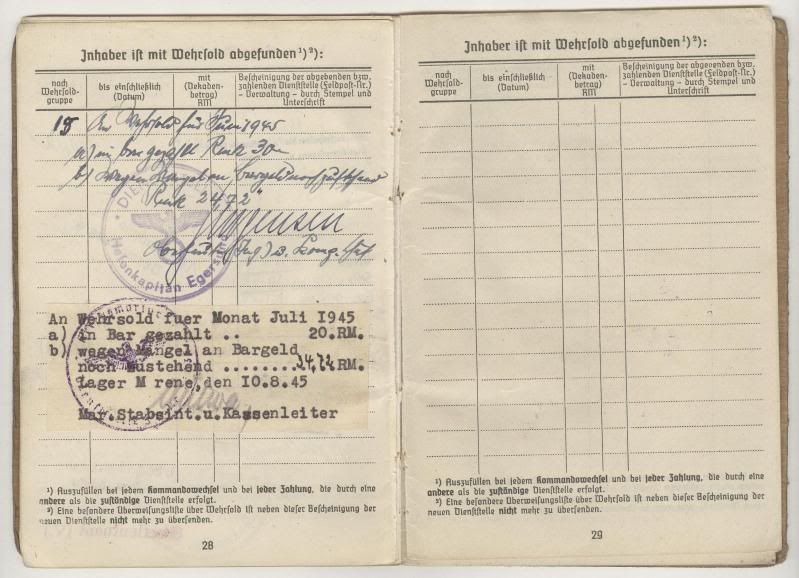 Inhaber ist mit Wehrsold abgefunden¹)²):
nach Wehrsold-gruppe
bis einschließlich (Datum)
mit (Dekaden-betrag) RM
Bescheinigung der abgebenden bzw. zahlenden Dienststelle (Feldpost-Nr.) – Verwaltung – durch Stempel und Unterschrift
15 An Wehrsold für Juni 1945
a) in bar gezahlt Rmk 30
b) wegen Mangel an Bargeld noch zustehend
Rmk 24,72
Hafenkapitän
An Wehrsold fuer Monat Juli I945
a) in Bar gezahlt .. 20.RM.
b) wegen Mangel an Bargeld
noch zustehend ........24,72 RM.
Lager M rene,den I0.8.45
Mar.Stabsint.u.Kassenleiter
¹) Auszufüllen bei jedem Kommandowechsel und bei jeder Zahlung, die durch eine
andere als die zuständige Dienststelle erfolgt.
²) Eine besondere Überweisungsliste über Wehrsold ist neben dieser Bescheinigung der
neuen Dienststelle nicht mehr zu übersenden.
28
Inhaber ist mit Wehrsold abgefunden¹)²):
nach Wehrsold-gruppe
bis einschließlich (Datum)
mit (Dekaden-betrag) RM
Bescheinigung der abgebenden bzw. zahlenden Dienststelle (Feldpost-Nr.) – Verwaltung – durch Stempel und Unterschrift
¹) Auszufüllen bei jedem Kommandowechsel und bei jeder Zahlung, die durch eine
andere als die zuständige Dienststelle erfolgt.
²) Eine besondere Überweisungsliste über Wehrsold ist neben dieser Bescheinigung der
neuen Dienststelle nicht mehr zu übersenden.
29